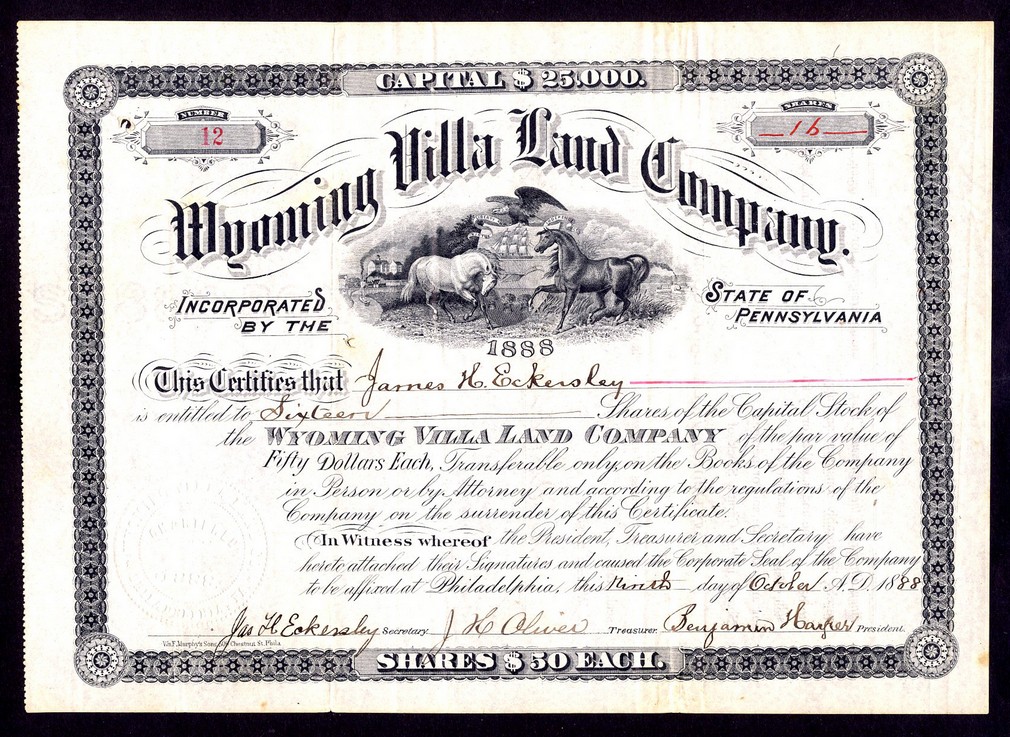 CAPITAL $ 25.000.
NUMBER
12
SHARES
16
Wyoming Villa Land Company.
INCORPORATED
BY THE
STATE OF
PENNSYLVANIA
1888
This Certifies that James H. Eckersley
is entitled to Sixteen Shares of the Capital Stock of
the WYOMING VILLA LAND COMPANY of the par value of
Fifty Dollars Each, Transferable only on the Books of the Company
in Person or by Attorney and according to the regulations of the
Company on the surrender of this Certificate.
In Witness whereof the President, Treasurer and Secretary have
hereto attached their Signatures and caused the Corporate Seal of the Company
to be affixed at Philadelphia, this Ninth day of October A.D. 1888
Jas H Eckersley Secretary. J H Oliver Treasurer. Benjamin Harper President.
Wm F. Murphy's Sons Chestnut St. Phila
SHARES $ 50 EACH.